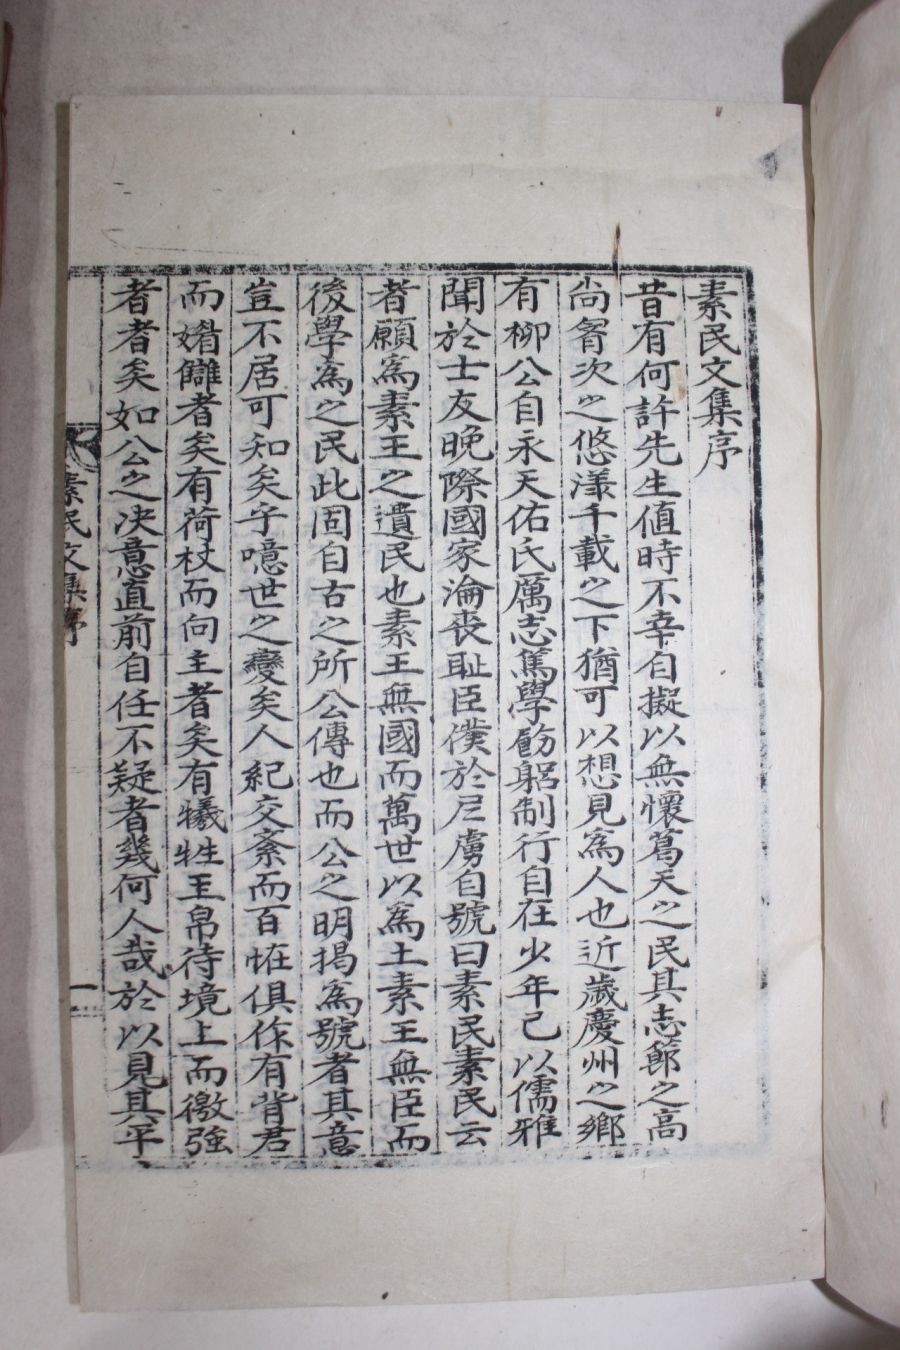 素民文集序
昔有何許先生値時不幸自擬以無懷葛天之民其志節之高
尙胷次之悠漾千載之下猶可以想見爲人也近歲慶州之鄕
有柳公自永天佑氏厲志篤學飭躬制行自在少年己以儒雅
聞於士友晩際國家淪喪耻臣僕於戹虜自號曰素民素民云
者願爲素王之遺民也素王無國而萬世以爲土素王無臣而
後學爲之民此固自古之所公傳也而公之明揭爲號者其意
豈不居可知矣乎噫世之變矣人紀交紊而百恠俱作有背君
而媚讎者矣有荷杖而向主者矣有犧牲玉帛待境上而徼強
者者矣如公之决意直前自任不疑者幾何人哉於以見其平
素民文集序
一